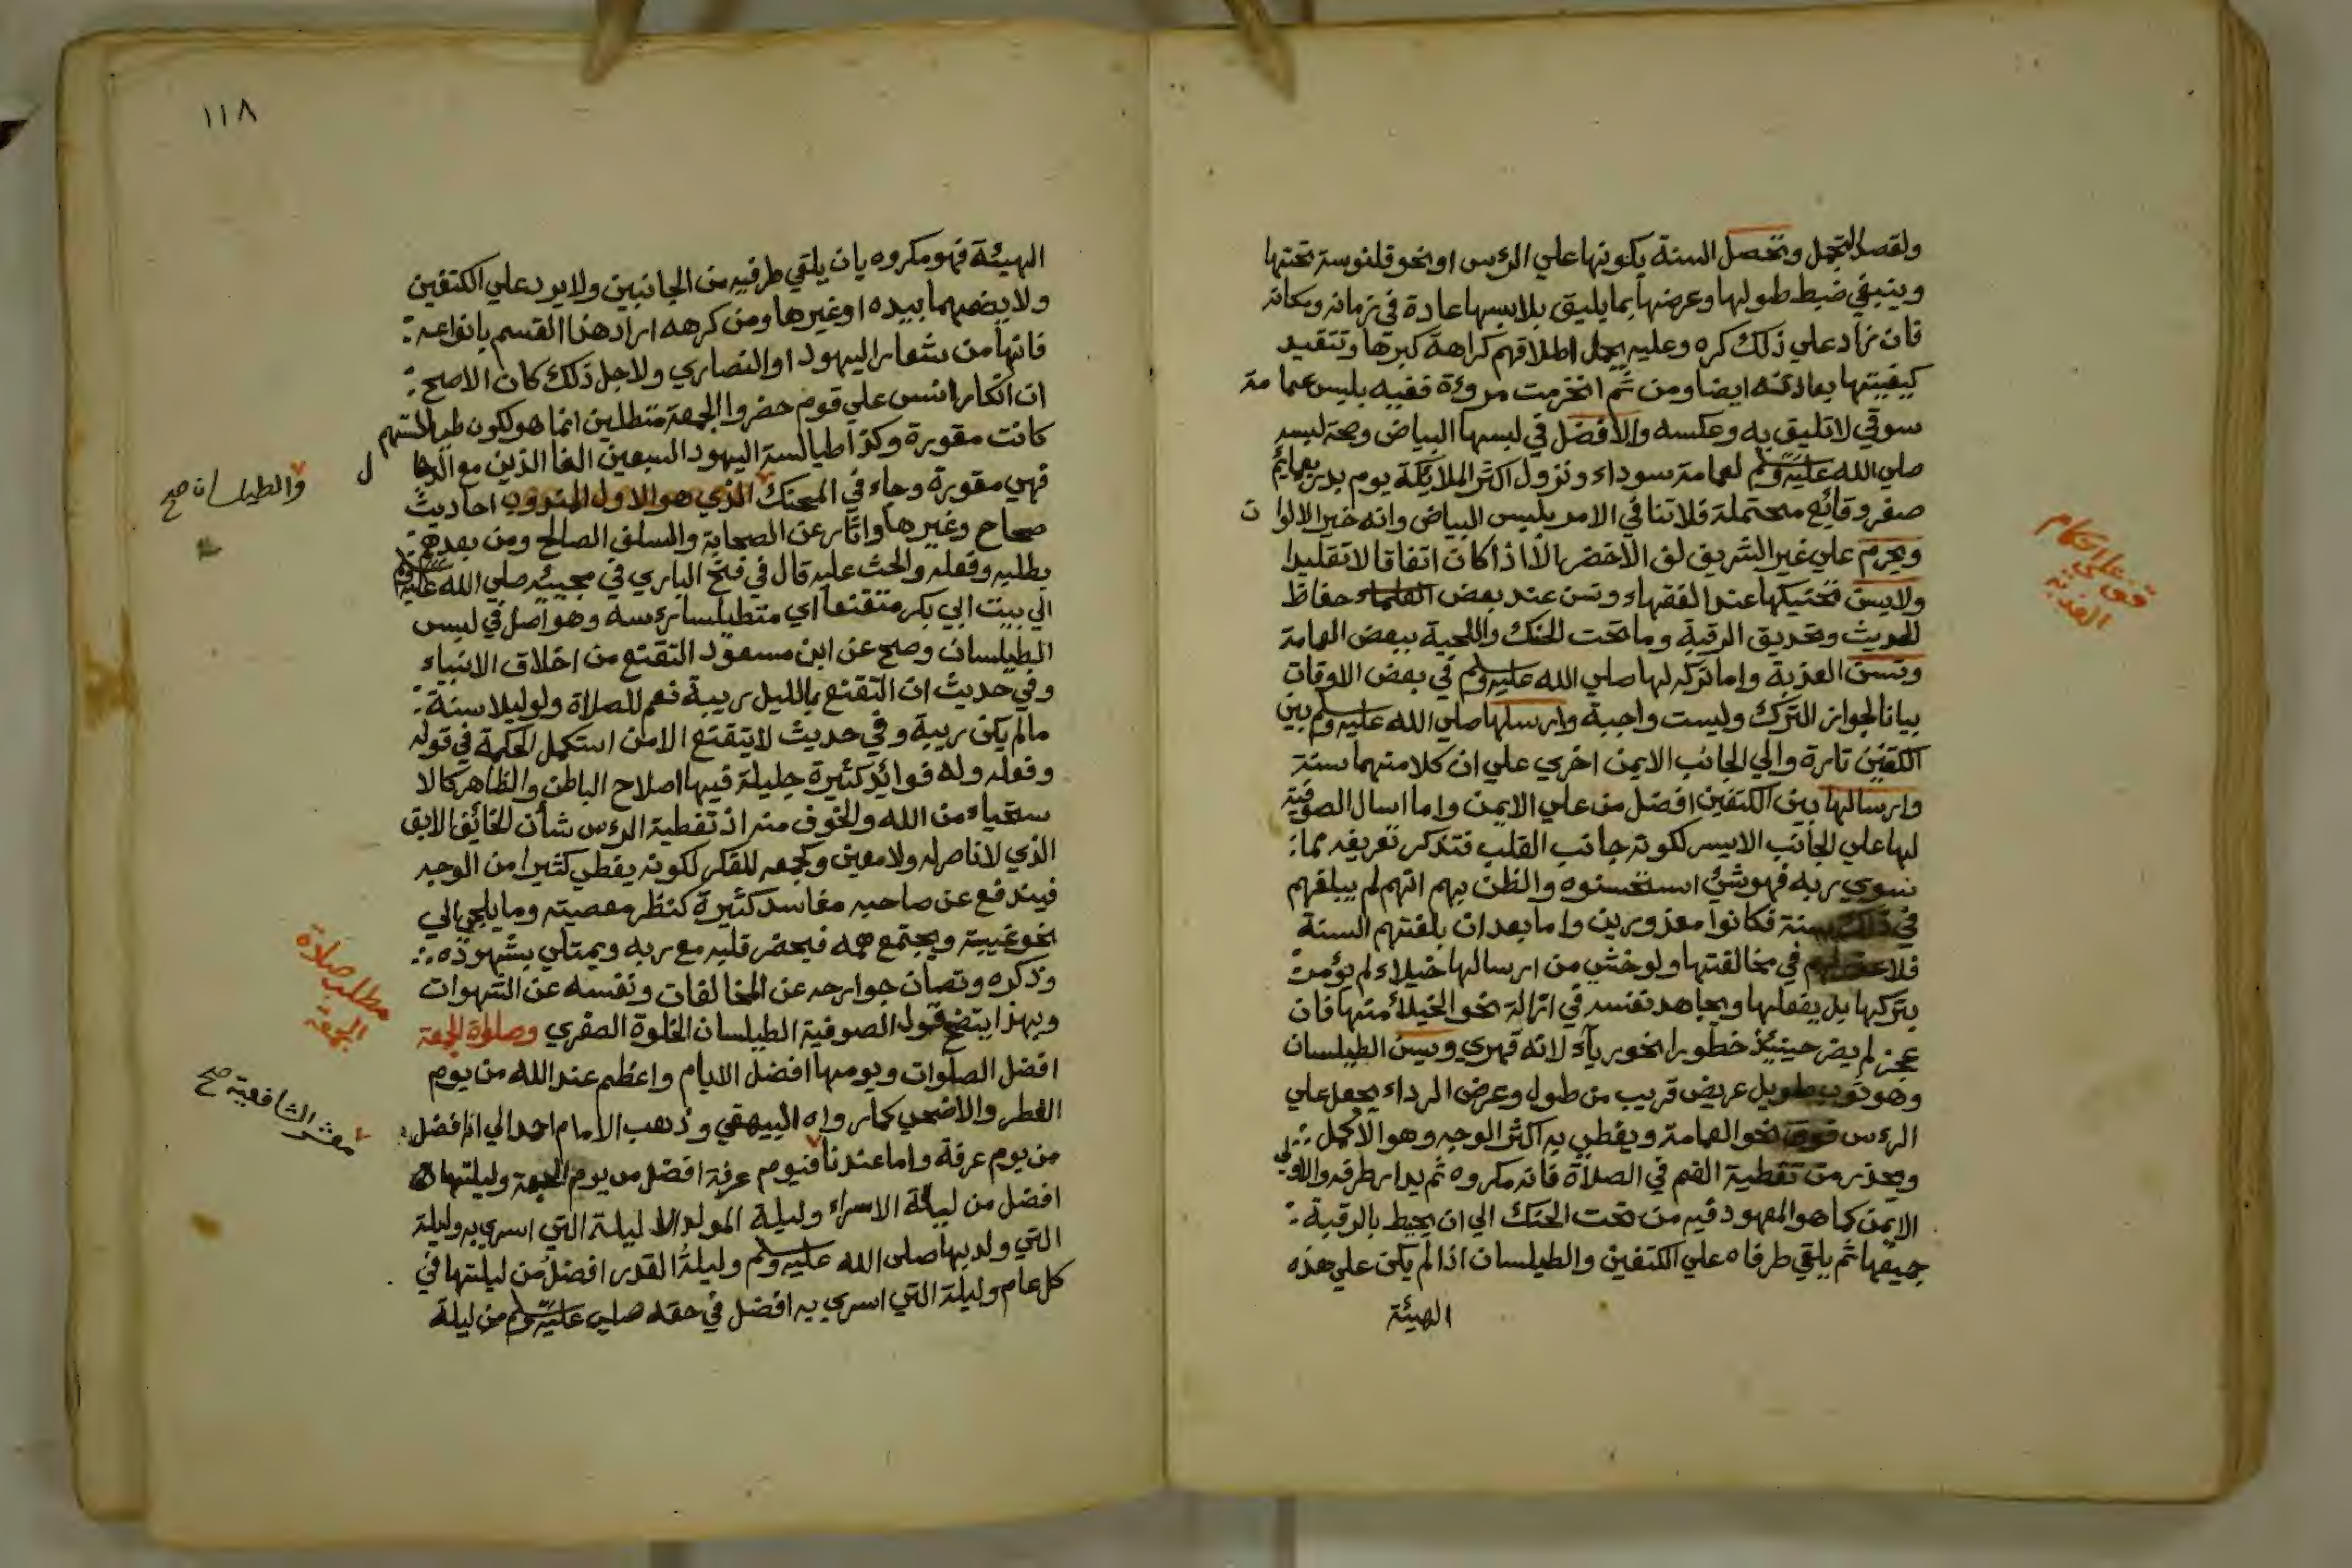 ولقصد التجمل وتحصل السنة بكونها علي الرءس او نحو قلنوسة تحتها
وينبغي ضبط طولها وعرضها بما يليق بلابسها عادة في زمانه ومكانه
فان زاد علي ذلك كره وعليه يحمل اطلاقهم كراهة كبرها وتتقيد
كيفيتها بعادته ايضا ومن ثم انخرمت مروءة فقيه بلبس عمامة
سوقي لا تليق به وعكسه والافضل في لبسها البياض وصحة لبسه
صلي الله عليه وسلم لعمامة سوداء ونزول اكثر الملائكة يوم بدر بعمائم
صفر وقائع محتملة فلا تنافي الامر بلبس البياض وانه خير الالوان
ويحرم علي غير الشريف لف الاخضر الا اذا كان اتفاقا لا تقليدا
ولا يسن تحنيكها عند الفقهاء وتسن عند بعض العلماء حفاظ
الحديث وتحديق الرقبة وما تحت الحنك واللحية ببعض العمامة
وتسن العذبة وإما تركه لها صلي الله عليه وسلم في بعض الاوقات
بيانا لجواز الترك وليست واجبة وارسلها صلي الله عليه وسلم بين
الكتفين تارة والي الجانب الايمن اخري علي ان كلا منهما سنة
وارسالها بين الكتفين افضل من علي الايمن واما اسال الصوفية
لها علي الجانب الايسر لكونه جانب القلب فتذكر تفريغه مما
سوي ربه فهو شئ استحسنوه والظن بهم انهم لم يبلغهم
في ذلك سنة فكانوا معذورين واما بعد ان بلغتهم السنة
فلا عذر لهم في مخالفتها ولو خشي من ارسالها خيلاء لم يؤمر
بتركها بل يفعلها ويجاهد نفسه في ازالة نحو الخيلاء منها فان
عجز لم يضر حينيئذ خطورا نحو رياء لانه قهري ويسن الطيلسان
وهو ثوب طويل عريض قريب من طول وعرض الرداء يجعل علي
الرءس فوق نحو العمامة ويغطي به اكثر الوجه وهو الاكمل
ويحذر من تغطية الفم في الصلاة فانه مكروه ثم يدار طرفه والاولي
الايمن كما هو المعهود فيه من تحت الحنك الي ان يحيط بالرقبة
جميعها ثم يلقي طرفاه علي الكتفين والطيلسان اذا لم يكن علي هذه
الهيئة
قف علي احكام
العذبة
١١٨
الهيئة فهو مكروه بان يلقي طرفيه من الجانبين ولا يرد علي الكتفين
ولا يضمهما بيده او غيرها ومن كرهه اراد هذا القسم بانواعه
فانها من شعار اليهود او النصاري ولاجل ذلك كان الاصح
ان انكار انس علي قوم حضروا الجمعة متطلين انما هو لكون طيالستهم
كانت مقورة وكذا طيالسة اليهود السبعين الفا الذين مع الدجال
فهي مقورة وجاء في المحنك الذي هو الاول المندوب احاديث
صحاح وغيرها واثار عن الصحابة والسلف الصالح ومن بعدهم
بطلبه وفعله والحث عليه قال في فتح الباري في مجيئه صلي الله عليه وسلم
الي بيت ابي بكر متقنعا اي متطيلسا رءسه وهو اصل في لبس
الطيلسان وصح عن ابن مسعود التقنع من اخلاق الانبياء
وفي حديث ان التقنع بالليل ريبة نعم للصلاة ولو ليلا سنة
مالم يكن ريبة وفي حديث لا يتقنع الا من استكمل الحكمة في قوله
وفعله وله فوائد كثيرة جليلة فيها اصلاح الباطن والظاهر كالا
ستحياء من الله والخوف منه اذ تغطية الرءس شأن الخائف الابق
الذي لا ناصر له ولا معين وكجمعه للفكر لكونه يغطي كثيرا من الوجه
فيندفع عن صاحبه مفاسد كثيرة كنظر معصيته وما يلجي الي
نحو غيبة ويجتمع همه فيحضر قلبه مع ربه ويمتلي بشهوده
وذكره وتصان جوارحه عن المخالفات ونفسه عن الشهوات
وبهذا يتضح قول الصوفية الطيلسان الخلوة الصغري وصلاة الجمعة
افضل الصلوات ويومها افضل الايام واعظم عند الله من يوم
الفطر والاضحي كما رواه البيهقي وذهب الامام احمد الي انه افضل
من يوم عرفة واما عندنا فيوم عرفة افضل من يوم الجمعة وليلتها
افضل من ليلة الاسراء وليلة المولد الا ليلة التي اسري به وليلة
التي ولد بها صلي الله عليه وسلم وليلة القدر افضل من ليلتها في
كل عام وليلة التي اسري به افضل في حقه صلي عليه وسلم من ليلة
والطيلسان صح
مطلب صلاة
الجمعة
معشر الشافعية صح